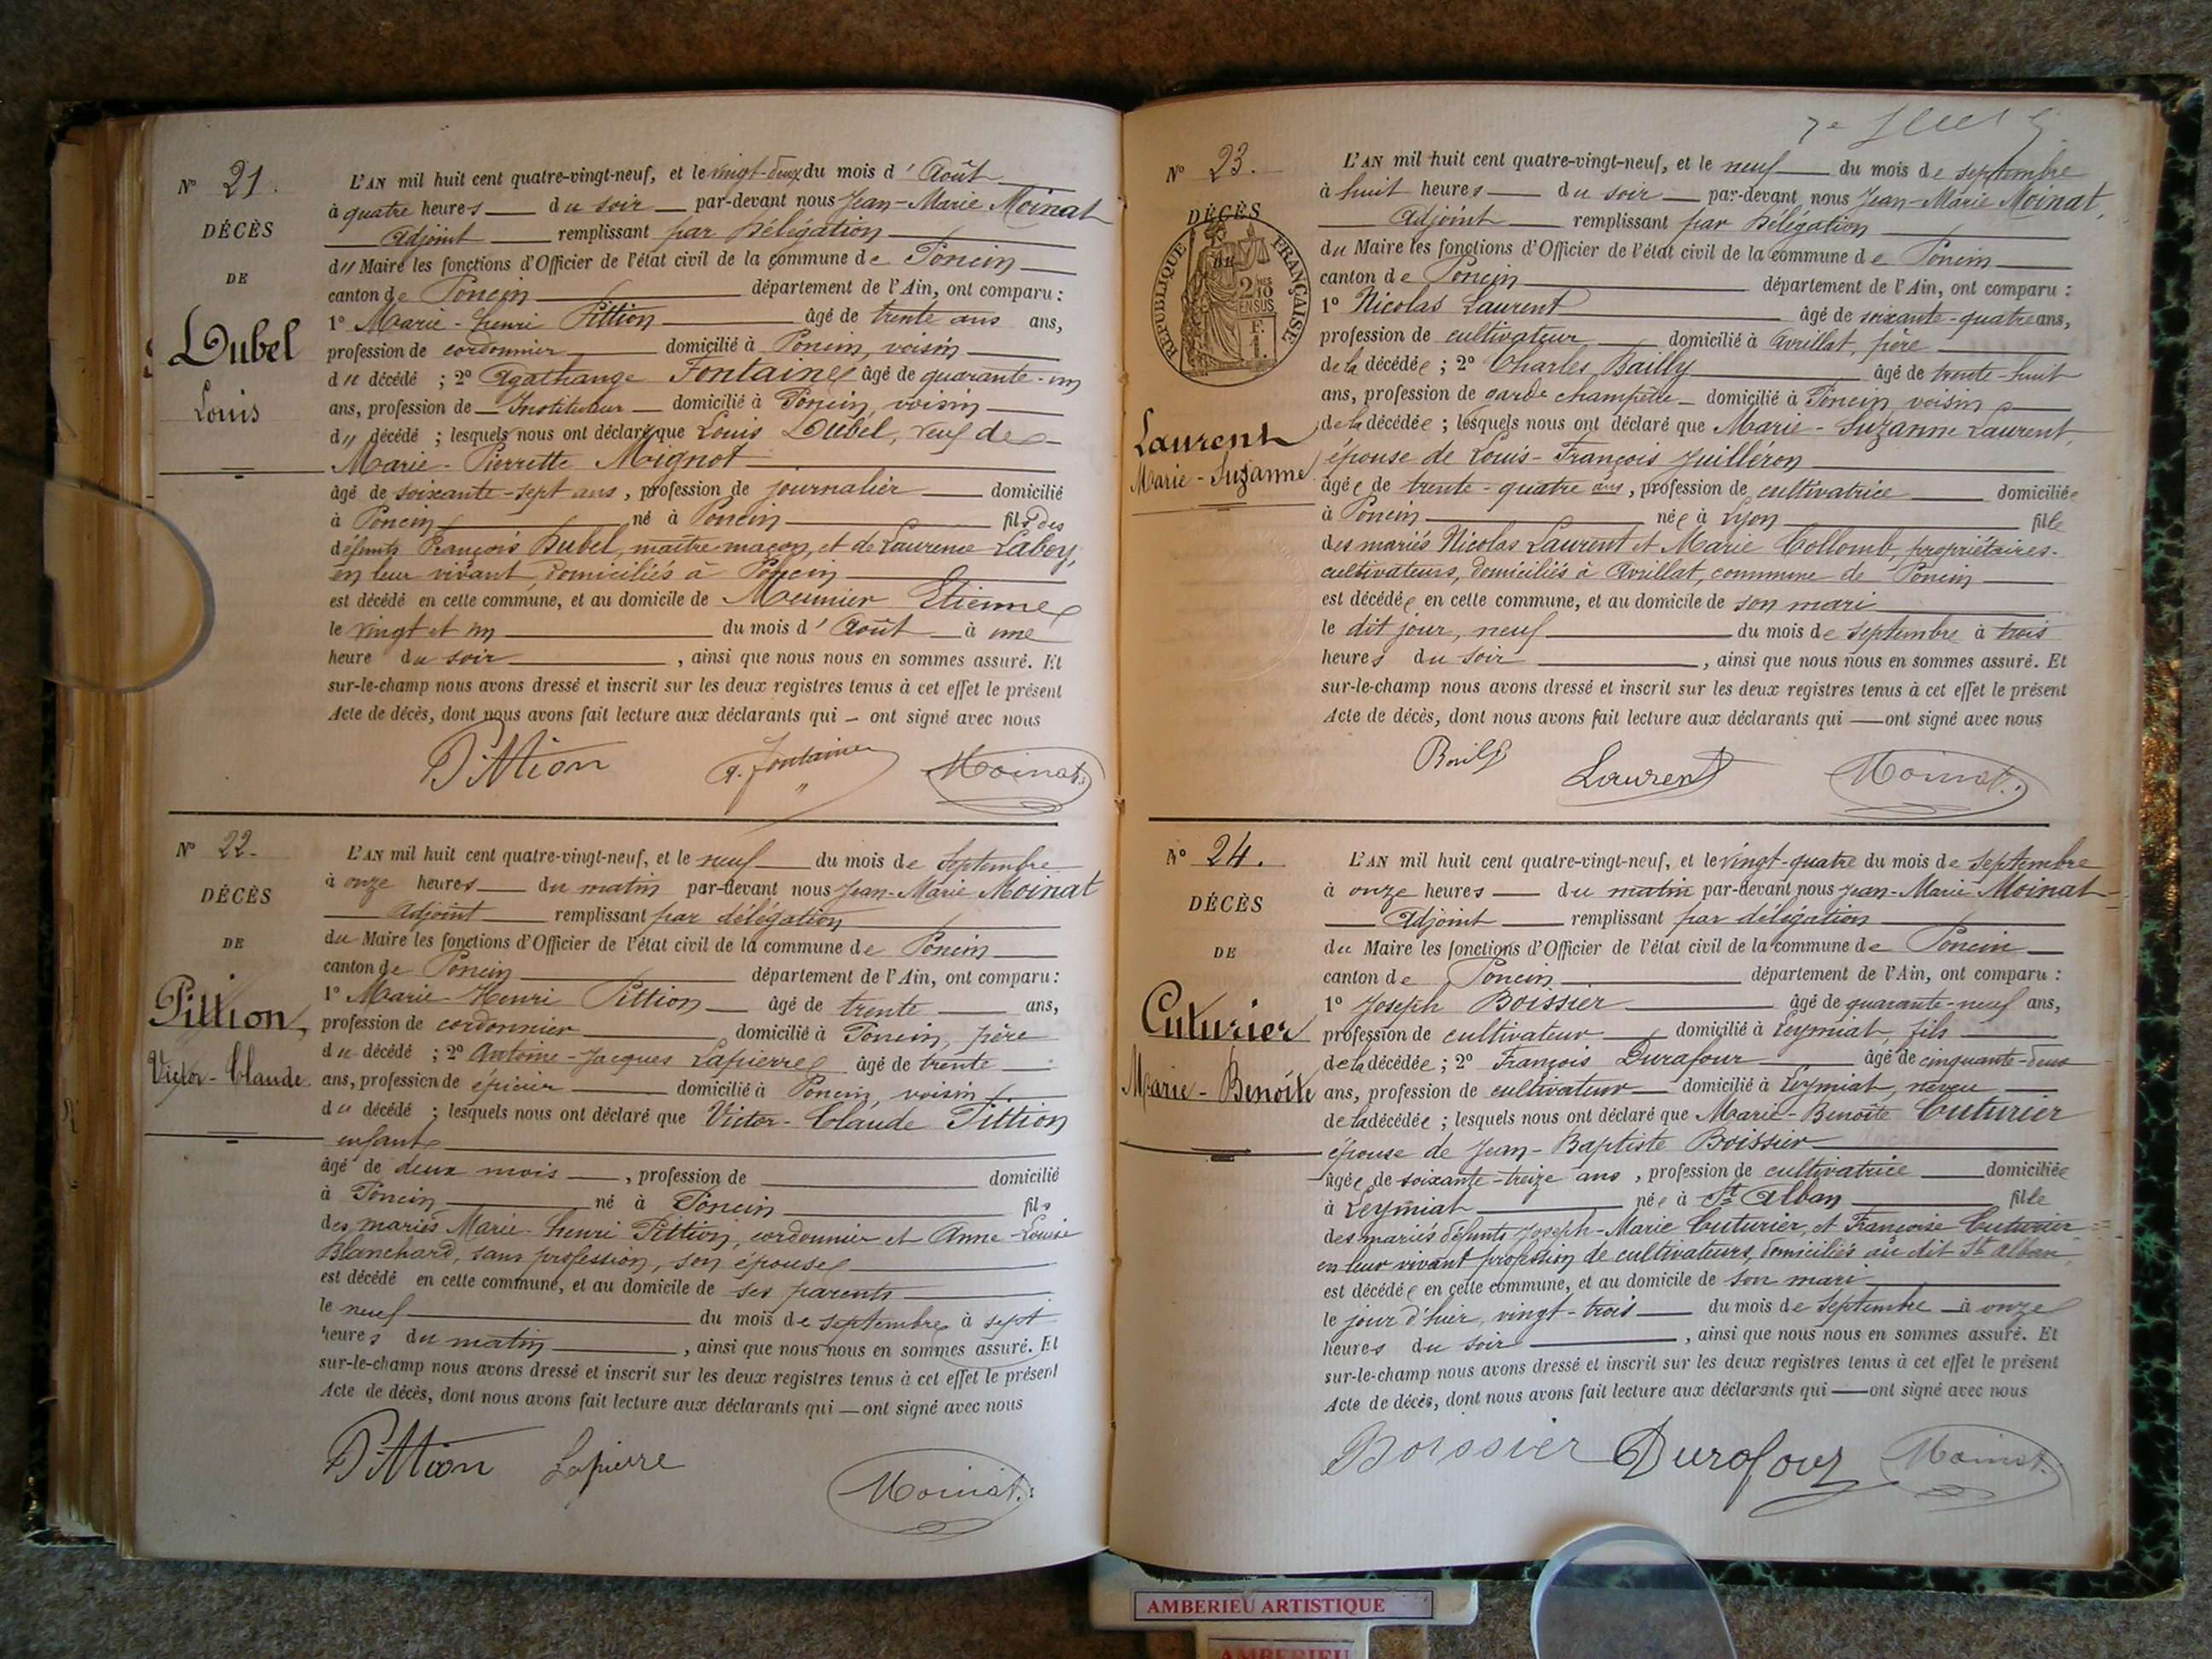 N° 21.
DÉCÈS
DE
Dubel
Louis
L'AN mil huit cent quatre-vingt-neuf, et le vingt-deux du mois d'Août
à quatre heures du soir par-devant nous Jean-Marie Moinat
Adjoint remplissant par Délégation
du Maire les fonctions d'Officier de l'état civil de la commune de Poncin
canton de Poncin département de l'Ain, ont comparu :
1° Marie-henri Pittion âgé de trente ans ans,
profession de cordonnier domicilié à Poncin, voisin
du décédé ; 2° Agathange Fontaine âgé de quarante-un
ans, profession de Instituteur domicilié à Poncin, voisin
du décédé ; lesquels nous ont déclaré que Louis Dubel, veuf de
Marie-Pierrette Mignot
âgé de soixante-sept ans, profession de journalier domicilié
à Poncin né à Poncin fils des
défunts François Dubel, maître maçon, et de Laurence Labey,
en leur vivant domiciliés à Poncin
est décédé en cette commune, et au domicile de Meunier Etienne
le vingt et un du mois d'Août à une
heure du soir, ainsi que nous nous en sommes assuré. Et
sur-le-champ nous avons dressé et inscrit sur les deux registres tenus à cet effet le présent
Acte de décès, dont nous avons fait lecture aux déclarants qui — ont signé avec nous
Pittion A. Fontaine Moinat
N° 22.
DÉCÈS
DE
Pittion,
Victor-Claude
L'AN mil huit cent quatre-vingt-neuf, et le neuf du mois de Septembre
à onze heures du matin par-devant nous Jean-Marie Moinat
Adjoint remplissant par délégation
du Maire les fonctions d'Officier de l'état civil de la commune de Poncin
canton de Poncin département de l'Ain, ont comparu :
1° Marie-Henri Pittion âgé de trente ans,
profession de cordonnier domicilié à Poncin, père
du décédé ; 2° Antoine-Jacques Lapierre âgé de trente
ans, profession de épicier domicilié à Poncin, voisin
du décédé ; lesquels nous ont déclaré que Victor-Claude Pittion
enfant
âgé de deux mois, profession de domicilié
à Poncin né à Poncin fils
des mariés Marie-henri Pittion, cordonnier et Anne-Louise
Blanchard, sans profession, son épouse
est décédé en cette commune, et au domicile de ses parents
le neuf du mois de septembre à sept
heures du matin, ainsi que nous nous en sommes assuré. Et
sur-le-champ nous avons dressé et inscrit sur les deux registres tenus à cet effet le présent
Acte de décès, dont nous avons fait lecture aux déclarants qui — ont signé avec nous
Pittion Lapierre Moinat
N° 23.
DÉCÈS
RÉPUBLIQUE FRANÇAISE
Laurent
Marie-Suzanne
L'AN mil huit cent quatre-vingt-neuf, et le neuf du mois de septembre
à huit heures du soir par-devant nous Jean-Marie Moinat,
Adjoint remplissant par Délégation
du Maire les fonctions d'Officier de l'état civil de la commune de Poncin
canton de Poncin département de l'Ain, ont comparu :
1° Nicolas Laurent âgé de soixante-quatre ans,
profession de cultivateur domicilié à Avrillat, père
de la décédée ; 2° Charles Bailly âgé de trente-huit
ans, profession de garde champêtre domicilié à Poncin voisin
de la décédée ; lesquels nous ont déclaré que Marie-Suzanne Laurent,
épouse de Louis-François Juilléron
âgée de trente-quatre ans, profession de cultivatrice domiciliée
à Poncin née à Lyon fille
des mariés Nicolas Laurent et Marie Collomb, propriétaires-
cultivateurs, domiciliés à Avrillat, commune de Poncin
est décédée en cette commune, et au domicile de son mari
le dit jour, neuf du mois de septembre à trois
heures du soir, ainsi que nous nous en sommes assuré. Et
sur-le-champ nous avons dressé et inscrit sur les deux registres tenus à cet effet le présent
Acte de décès, dont nous avons fait lecture aux déclarants qui — ont signé avec nous
Bailly Laurent Moinat
N° 24.
DÉCÈS
DE
Cuturier
Marie-Benoîte
L'AN mil huit cent quatre-vingt-neuf, et le vingt-quatre du mois de septembre
à onze heures du matin par-devant nous Jean-Marie Moinat
Adjoint remplissant par délégation
du Maire les fonctions d'Officier de l'état civil de la commune de Poncin
canton de Poncin département de l'Ain, ont comparu :
1° Joseph Boissier âgé de quarante-neuf ans,
profession de cultivateur domicilié à Leymiat, fils
de la décédée ; 2° François Durafour âgé de cinquante-deux
ans, profession de cultivateur domicilié à Leymiat, neveu
de la décédée ; lesquels nous ont déclaré que Marie-Benoîte Cuturier
épouse de Jean-Baptiste Boissier
âgée de soixante-treize ans, profession de cultivatrice domiciliée
à Leymiat née à St Alban fille
des mariés défunts Joseph-Marie Cuturier, et Françoise Cuturier
en leur vivant profession de cultivateurs, domiciliés au dit St Alban
est décédée en cette commune, et au domicile de son mari
le jour d'hier, vingt-trois du mois de Septembre à onze
heures du soir, ainsi que nous nous en sommes assuré. Et
sur-le-champ nous avons dressé et inscrit sur les deux registres tenus à cet effet le présent
Acte de décès, dont nous avons fait lecture aux déclarants qui — ont signé avec nous
Boissier Durafour Moinat
AMBERIEU ARTISTIQUE
AMBERIEU